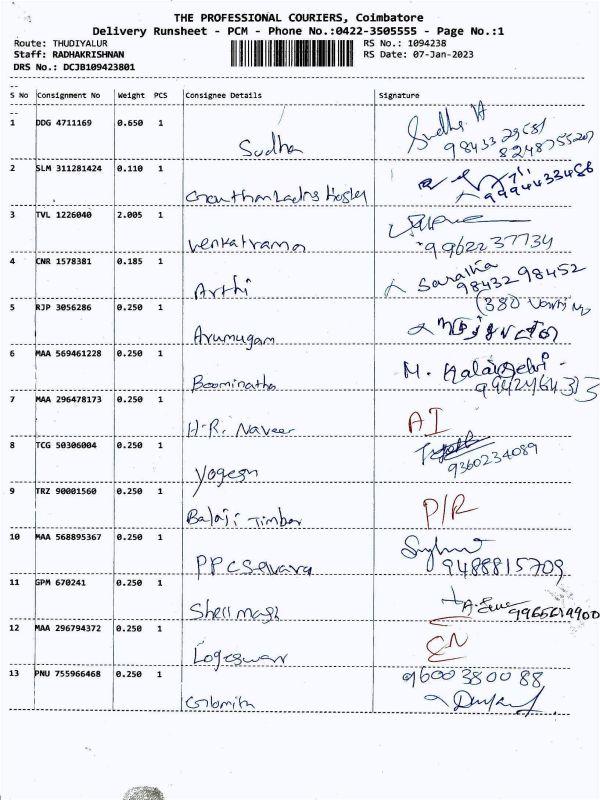 THE PROFESSIONAL COURIERS, Coimbatore
Delivery Runsheet - PCM - Phone No.:0422-3505555 - Page No.:1
Route: THUDIYALUR RS No.: 1094238
Staff: RADHAKRISHNAN RS Date: 07-Jan-2023
DRS No.: DCJB109423801
S No Consignment No Weight PCS Consignee Details Signature
1 DDG 4711169 0.650 1
Sudha
2 SLM 311281424 0.110 1
3 TVL 1226040 2.005 1
Venkatraman 9962237734
4 CNR 1578381 0.185 1
Arthi 9843298452
5 RJP 3056286 0.250 1
Arumugam
6 MAA 569461228 0.250 1
Boominatha
7 MAA 296478173 0.250 1
H.R. Naveen AI
8 TCG 50306004 0.250 1
Yogesh 9360234089
9 TRZ 90001560 0.250 1
Balaji Timber P/R
10 MAA 568895367 0.250 1
9488815709
11 GPM 670241 0.250 1
12 MAA 296794372 0.250 1
Logeswari
13 PNU 755966468 0.250 1
9600380088